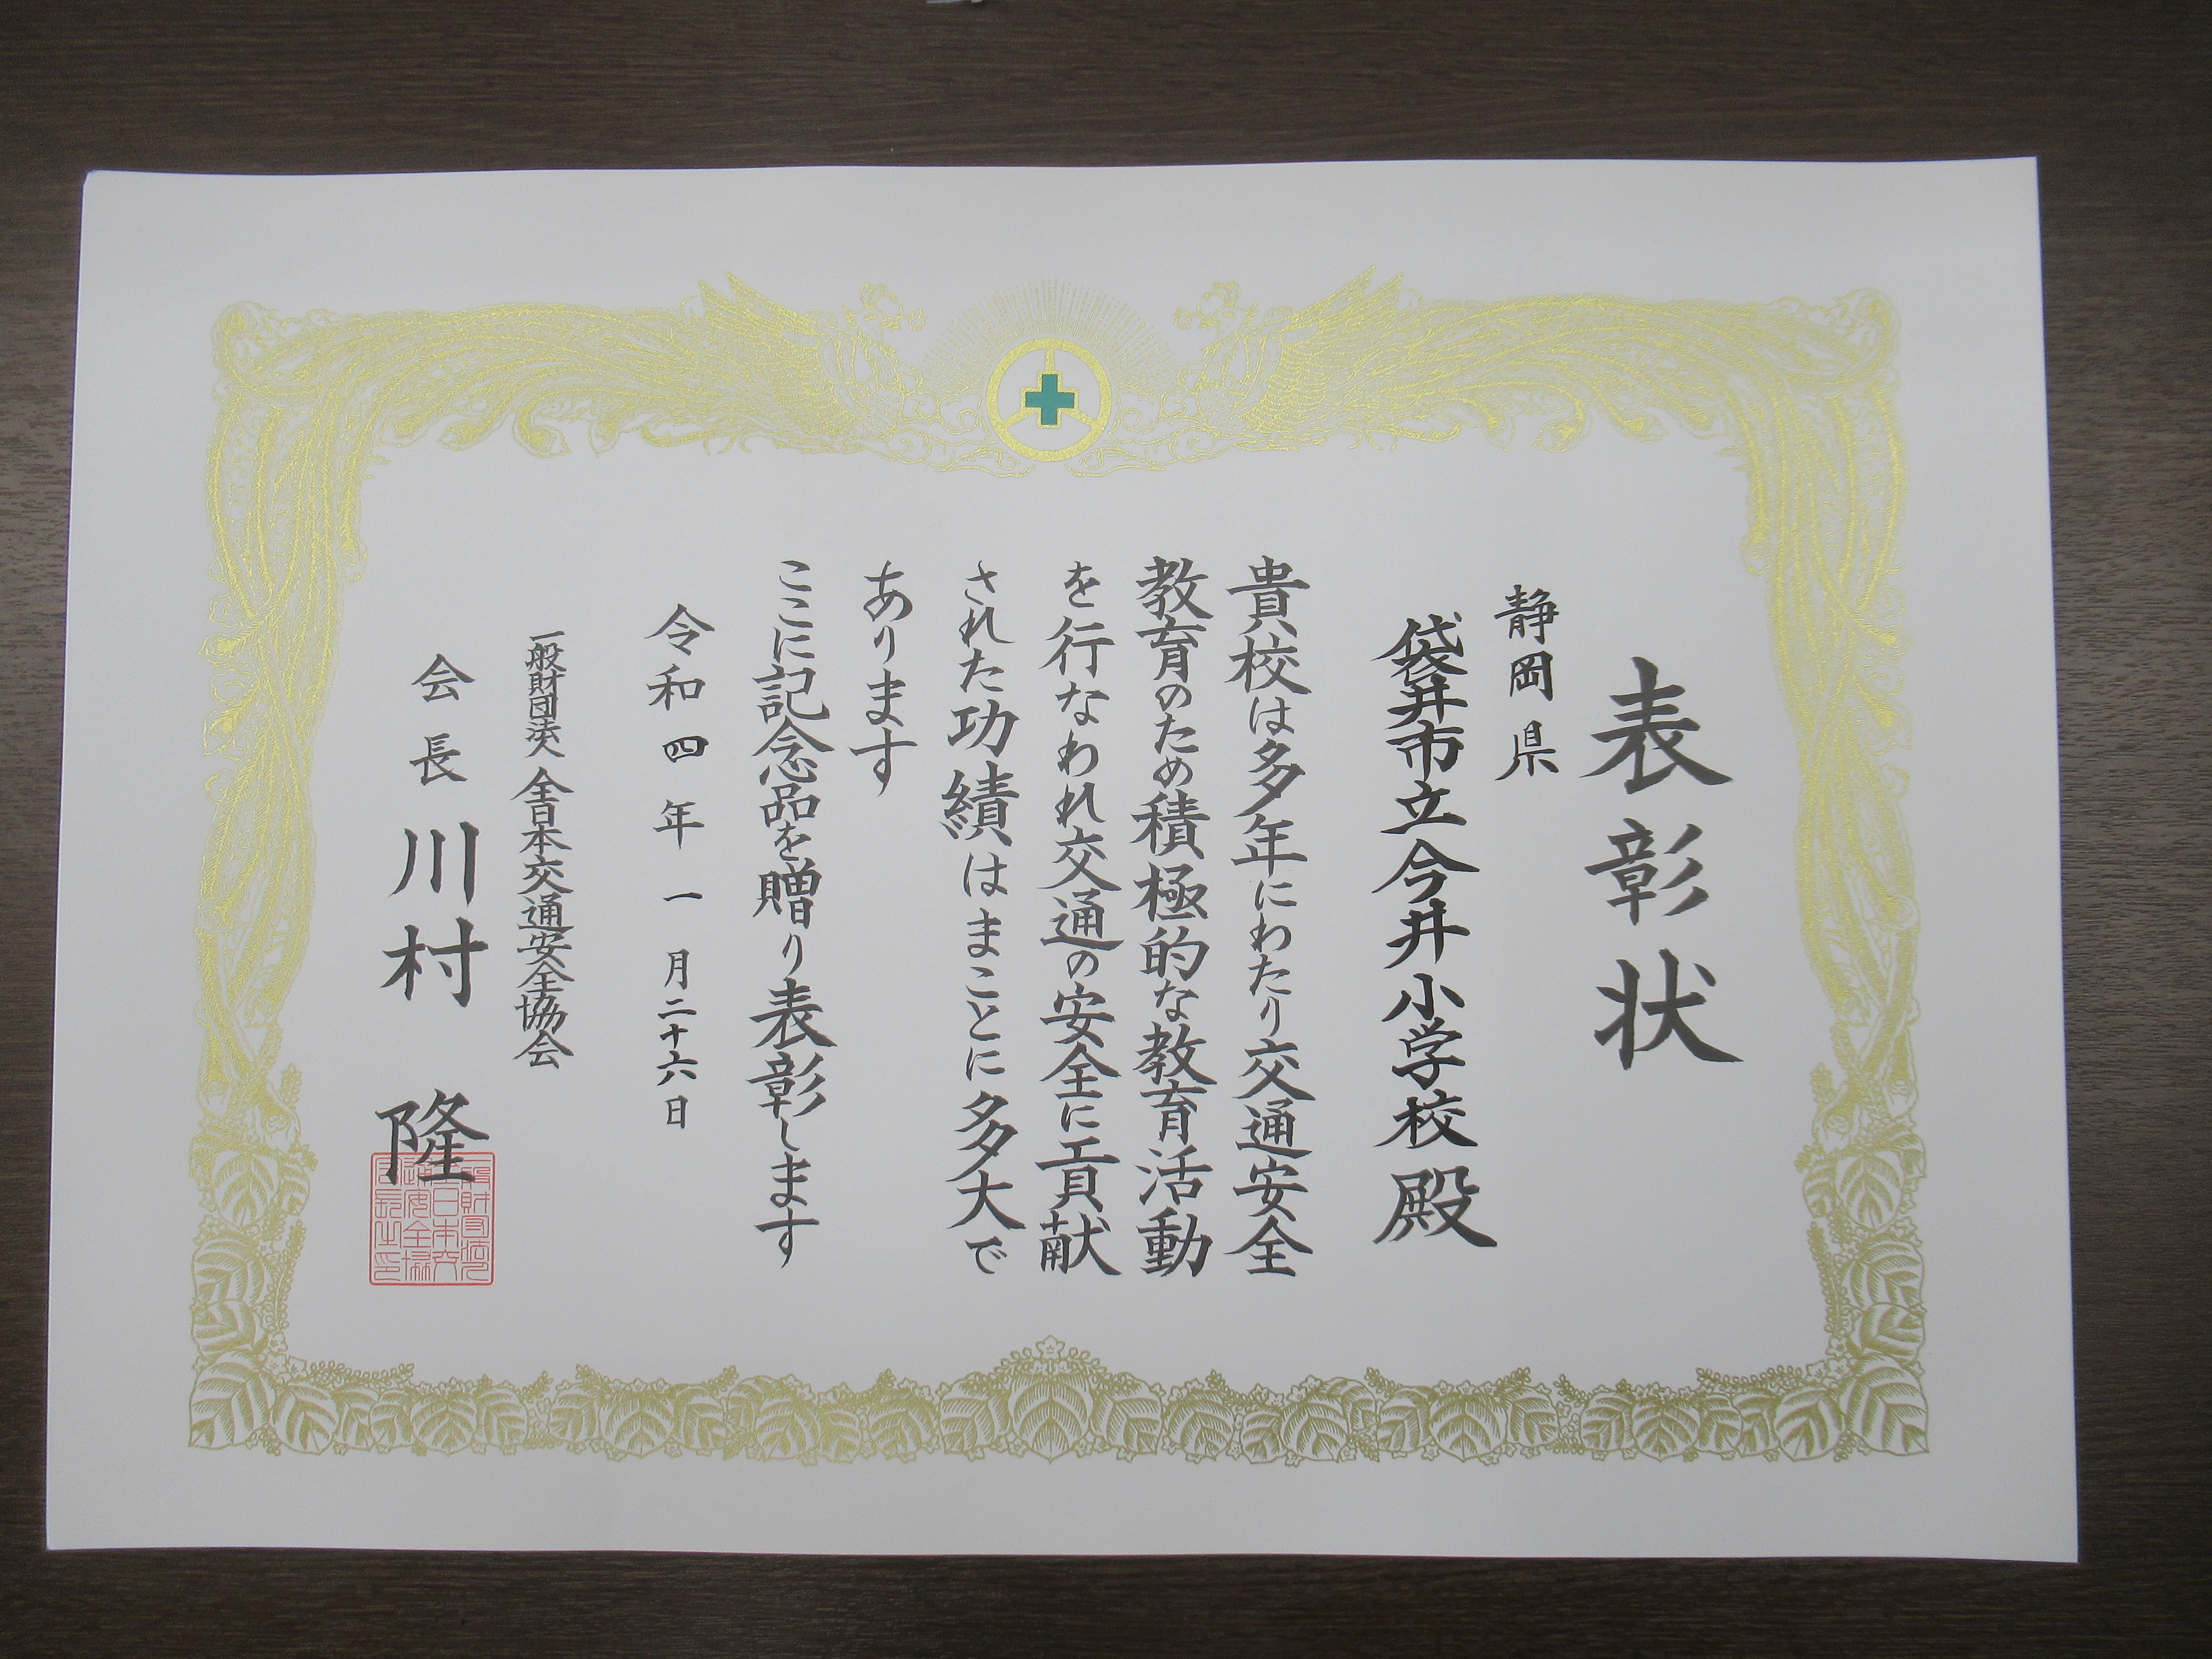 表彰状
静岡県
袋井市立今井小学校殿
貴校は多年にわたり交通安全
教育のため積極的な教育活動
を行なわれ交通の安全に貢献
された功績はまことに多大で
あります
ここに記念品を贈り表彰します
令和四年一月二十六日
一般財団法人全日本交通安全協会
会長川村隆
一般財団法人
全日本交
通安全協
会長之印